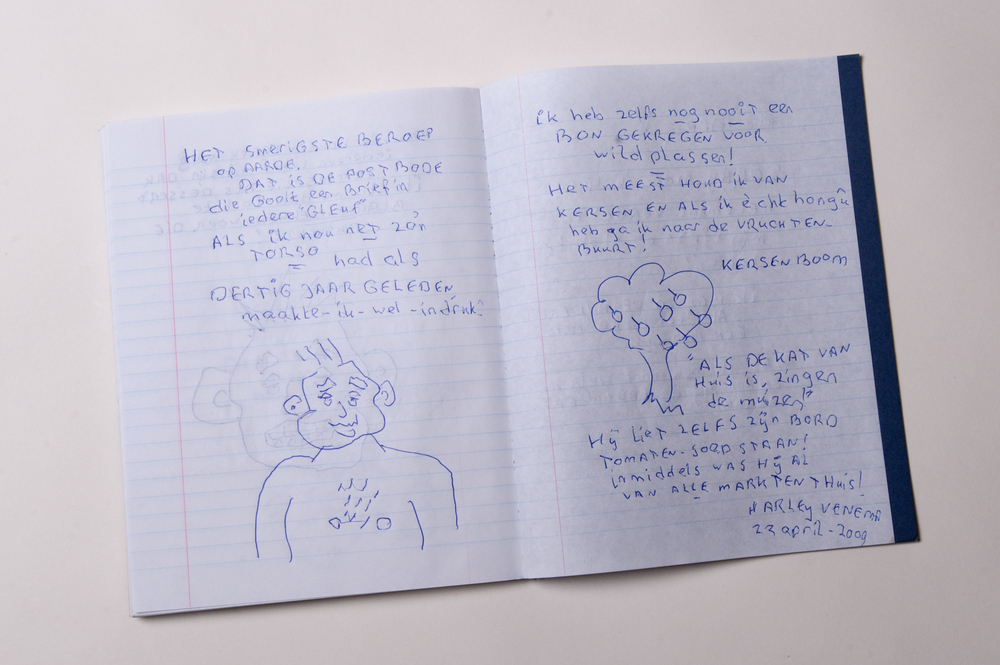 HET SMERIGSTE BEROEP
OP AARDE.
DAT is DE POSTBODE
die Gooit een Brief in
iedere "GLEUF"
ALS ik nou net zo'n
TORSO had als
DERTIG JAAR GELEDEN
maakte-ik-wel-indruk!
ik heb zelfs nog nooit een
BON GEKREGEN VOOR
wildplassen!
HET MEEST HOUD ik VAN
KERSEN EN ALS ik ècht hongû
heb ga ik naar de VRUCHTEN-
BUURT!
KERSENBOOM
"ALS DE KAT VAN
Huis is, zingen
de muizen!"
Hij LiET ZELFS Zijn BORD
TOMATEN-SOEP STAAN!
inmiddels WAS Hij Al
VAN ALLE MARKTEN THuis!
HARLEY VENEMA
23 april-2009